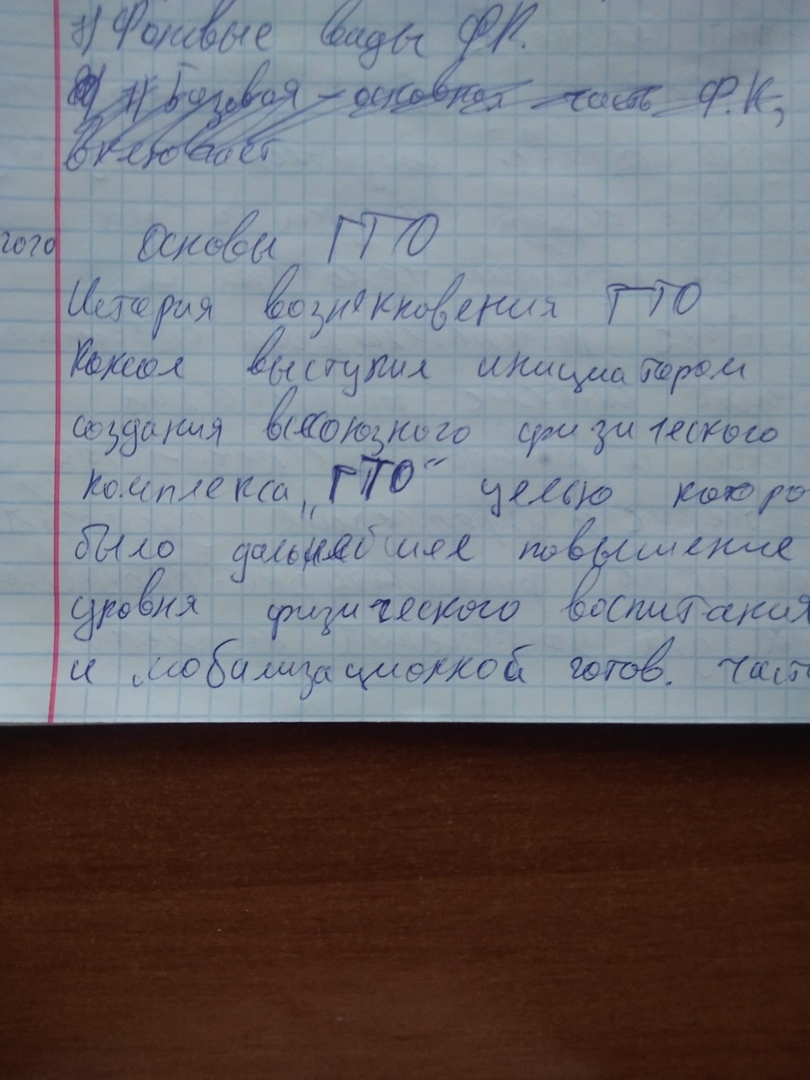 7) Фоновые виды ФК.
1) Базовая - основная часть Ф.К,
включает
того
Основы ГТО
История возникновения ГТО
выступил инициатором
создания всесоюзного физического
комплекса „ГТО“ целью которо
было дальнейшее повышение
уровня физического воспитания
и мобилизационной готов. част